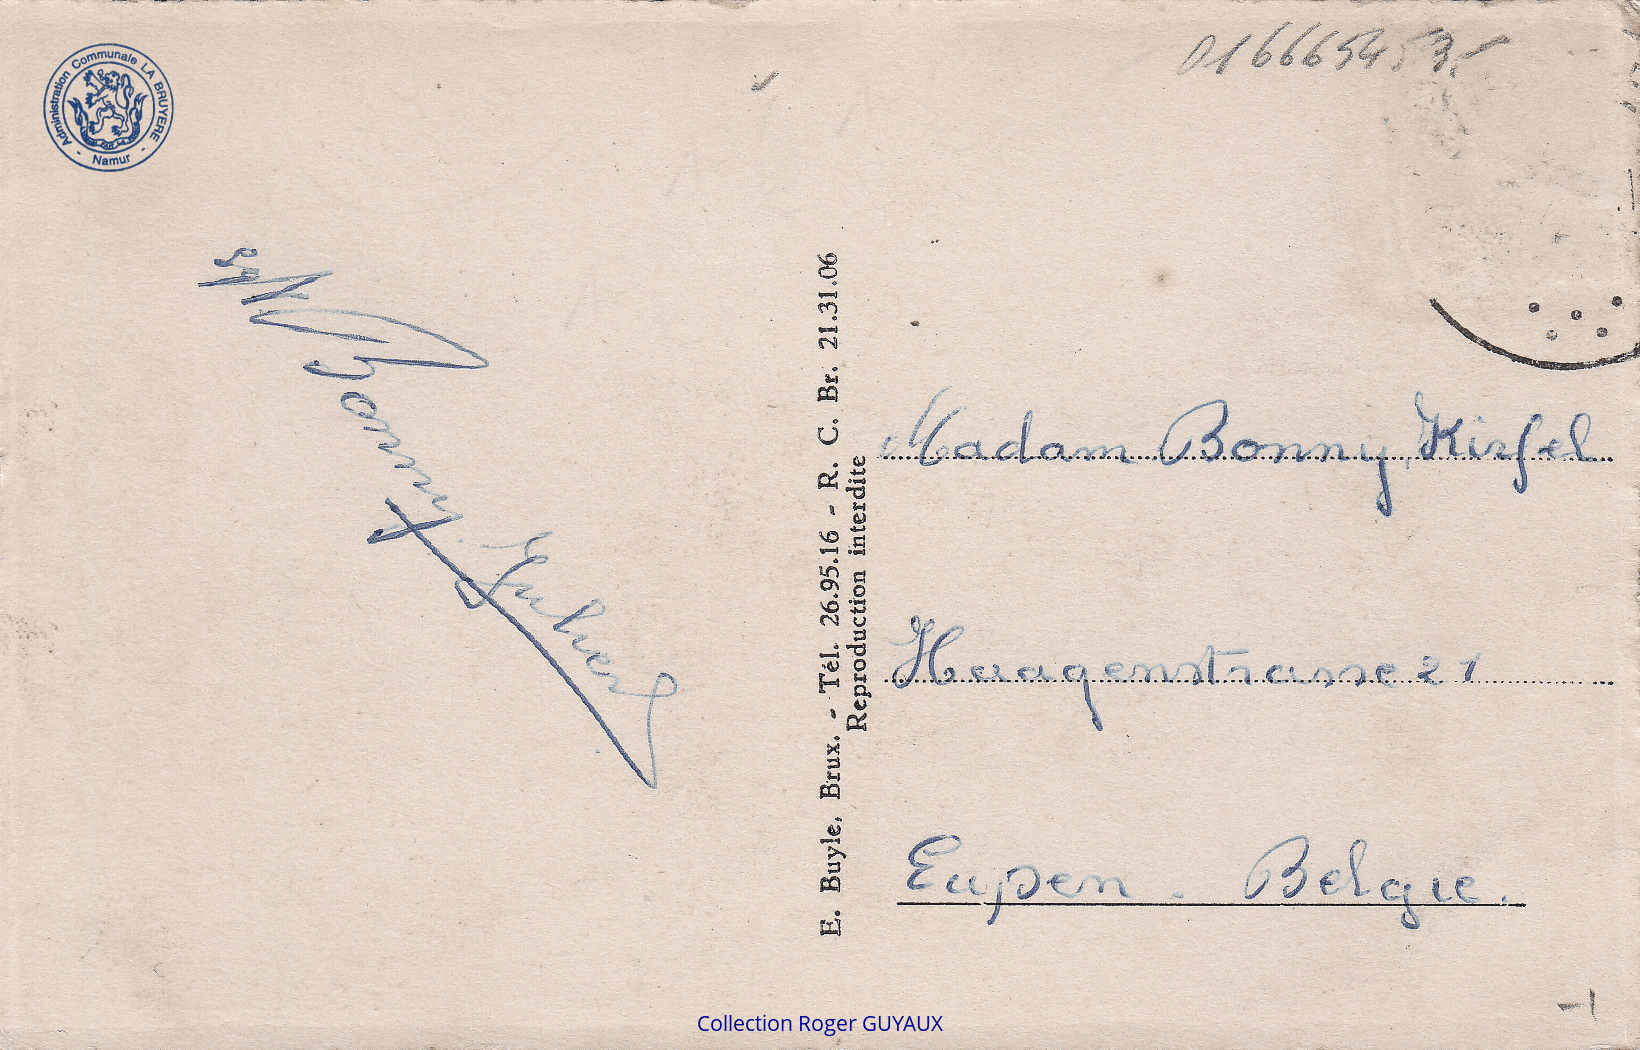 Administration Communale LA BRUYERE
- Namur -
0166654 53.-
Bonny
E. Buyle, Brux. - Tél. 26.95.16 - R. C. Br. 21.31.06
Reproduction interdite
Madam Bonny, Kirfel
Haagenstrasse 21
Eupen - Belgie.
-1
Collection Roger GUYAUX